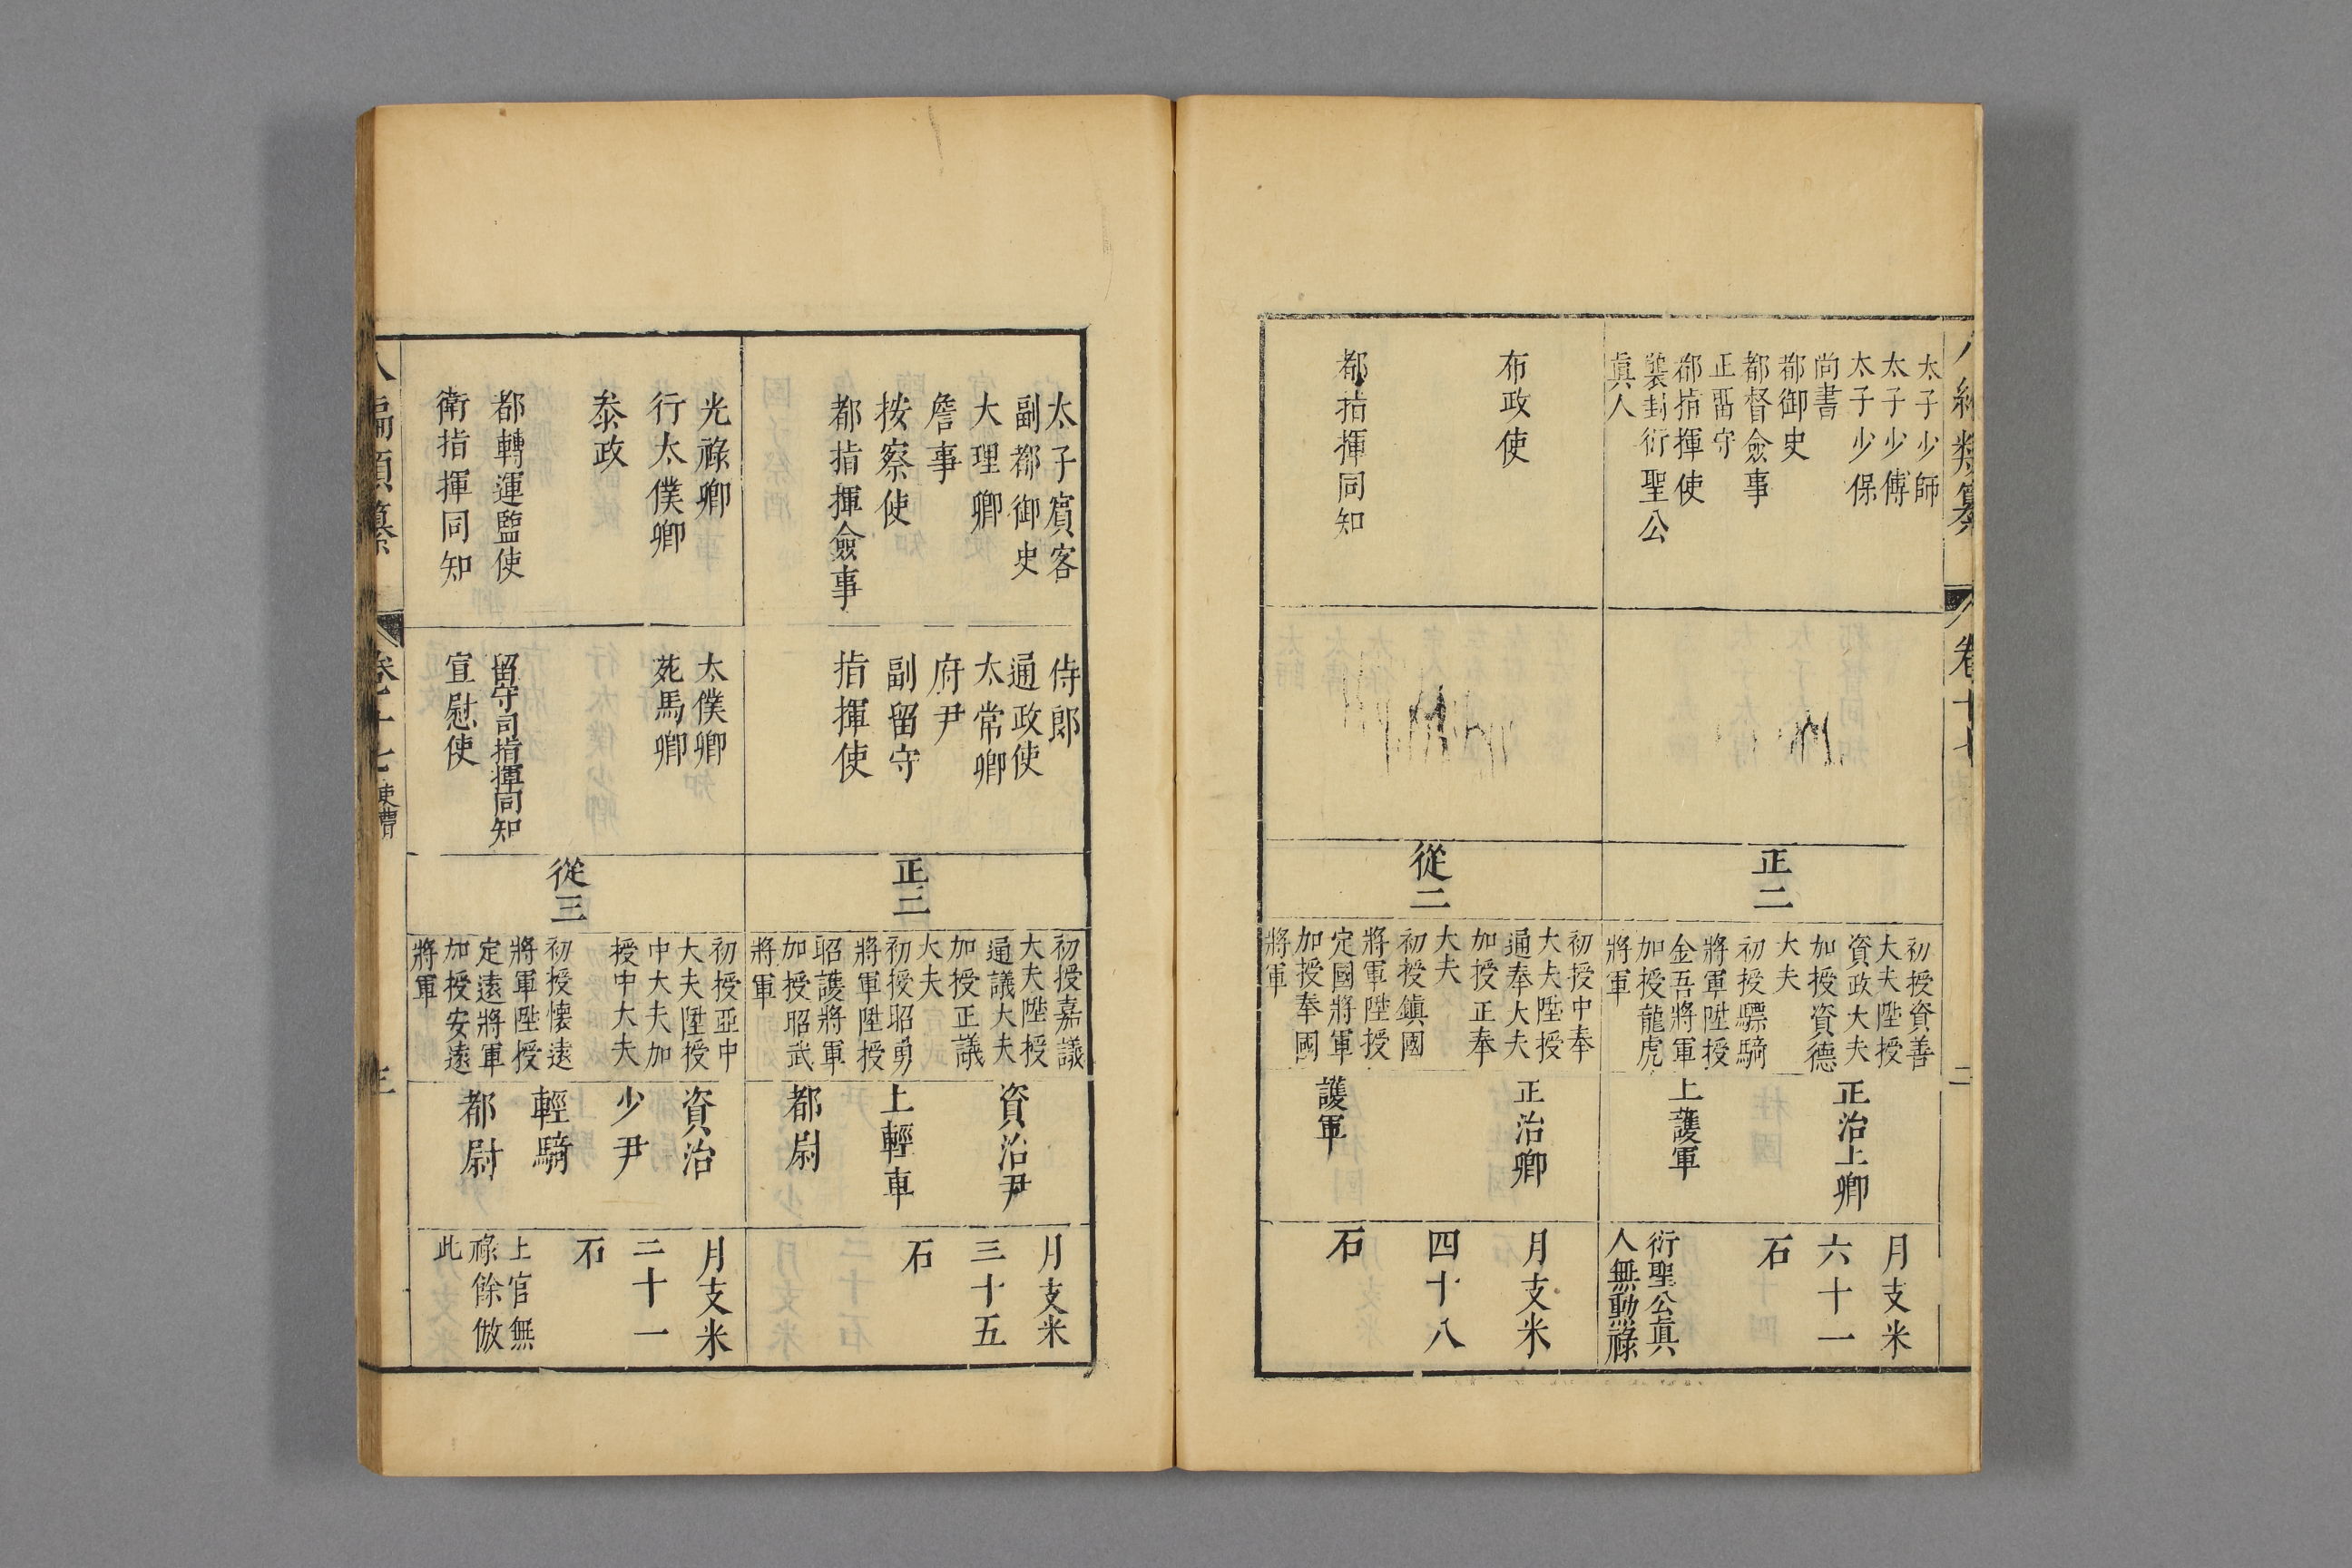 太子少師
太子少傅
太子少保
尚書
都御史
都督僉事
正畱守
都指揮使
襲封衍聖公
眞人
正二
初授資善
大夫陞授
資政大夫
加授資德
大夫
初授驃騎
將軍陞授
金吾將軍
加授龍虎
將軍
正治上卿
上護軍
月支米
六十一
石
衍聖公眞
人無勳祿
布政使
都指揮同知
從二
初授中奉
大夫陞授
通奉大夫
加授正奉
大夫
初授鎮國
將軍陞授
定國將軍
加授奉國
將軍
正治卿
護軍
月支米
四十八
石
太子賓客
副都御史
大理卿
詹事
按察使
都指揮僉事
侍郎
通政使
太常卿
府尹
副留守
指揮使
正三
初授嘉議
大夫陞授
通議大夫
加授正議
大夫
初授昭勇
將軍陞授
昭護將軍
加授昭武
將軍
資治尹
上輕車
都尉
月支米
三十五
石
光祿卿
行太僕卿
叅政
都轉運監使
衛指揮同知
太僕卿
苑馬卿
留守司指揮同知
宣慰使
從三
初授亞中
大夫陞授
中大夫加
授中大夫
初授懷遠
將軍陞授
定遠將軍
加授安遠
將軍
資治
少尹
輕騎
都尉
月支米
二十一
石
上官無
祿餘倣
此